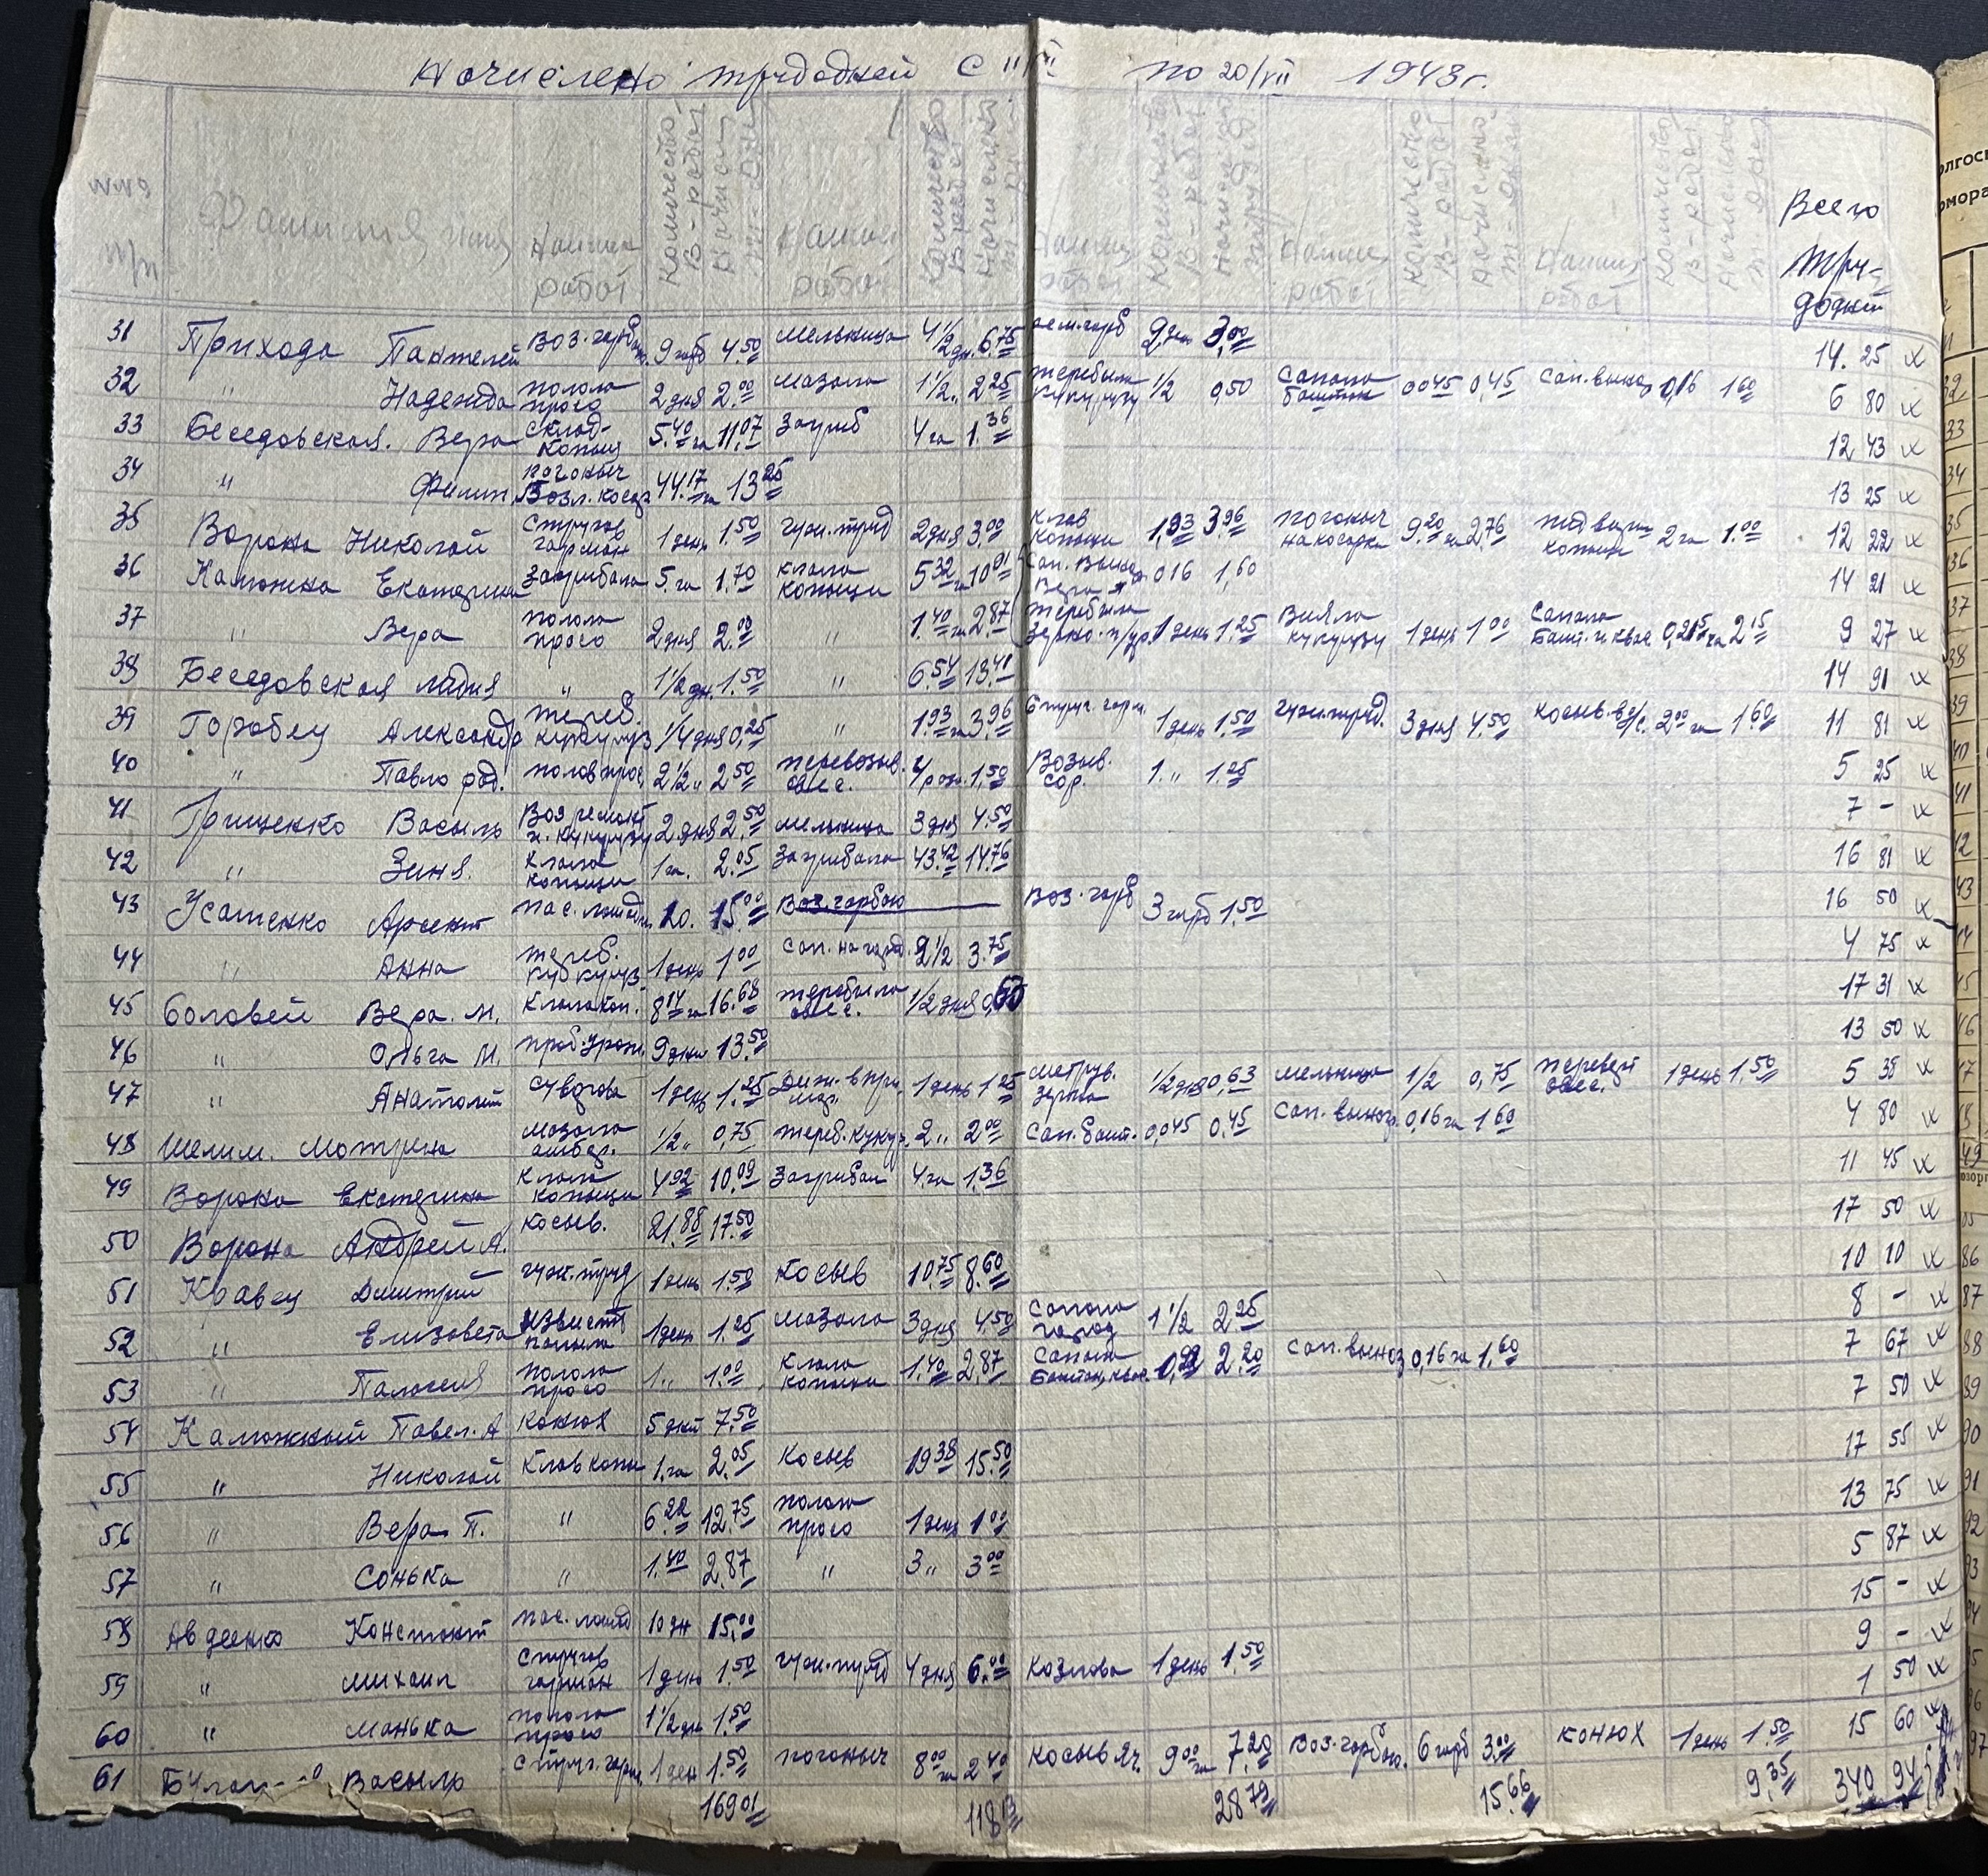 Начислено трудодней с 11/VII по 20/VII 1943 г.
Фамилия имя Наимен. работ Количество В-работ Начислен. тр-дней Наимен. работ Количество В-работ Начислен. тр-дней Наимен. работ Количество В-работ Начислен. труд. д. Наимен. работ Количество В-работ Начислено т-дней Наимен. работ Количество В-работ Начислено т. дней Всего труддодней
31 Прихода Пантелей воз. гарбою 9 гарб 4.50 мельница 4 1/2 дн. 6.75 рем. гарб 2 дня 3.00 14.25
32 " Надежда полола просо 2 дня 2.00 мазала 1 1/2 " 2.25 теребила кукурузу 1/2 0,50 сапала баштан 0,045 0,45 сап. виног. 0,16 1.60 6 80
33 Беседовская. Вера склад. копиц 5.40 га 11.07 загриб 4 га 1.36 12 43
34 " Филип погоныч возл. косар. 44.17 га 13.25 13 25
35 Ворона Николай стругов гарман 1 день 1.50 гуж. труд 2 дня 3.00 клав копици 1,93 3.96 погоныч на косарке 9.20 га 2.76 копици 2 га 1.00 12 22
36 Калюжна Екатерина загрибала 5. га 1.70 клала копици 5.32 га 10.91 сап. виног. 016 1,60 14 21
37 " Вера полола просо 2 дня 2.00 " 1.40 га 2.87 теребила 1 день 1.25 Вияла кукурузу 1 день 1.00 сапала башт. и квас. 0,215 га 2.15 9 27
38 Беседовская Лидия " 1 1/2 дн. 1.50 " 6.54 13.41 14 91
39 Горобец Александр тереб. кукуруз 1/4 дня 0,25 " 1.93 га 3.96 струг. гарм. 1 день 1.50 гуж. труд. 3 дня 4.50 косыв. 2.00 га 1.60 11 81
40 " Павло полов прос. 2 1/2 " 2.50 перевозыв. овес. 4 раз. 1.50 Возыв. 1. " 1.25 5 25
41 Грищенко Васыль Воз ремонт 2 дня 2.50 мельница 3 дня 4.50 7 -
42 " Зина. клала копици 1 га. 2.05 загрибала 43.42 14.76 16 81
43 Усатенко Арсент пас. лошад. 10. 15.00 Воз. гарбою воз. гарб 3 гарб 1.50 16 50
44 " Анна тереб. кукуруз. 1 день 1.00 сап. на город. 2 1/2 3.75 4 75
45 Соловей Вера. М. Клала коп. 8.14 га 16.68 теребила овес. 1/2 дня 0,63 17 31
46 " Ольга М. 9 дни 13.50 13 50
47 " Анатолий 1 день 1.25 1 день 1.25 зерна 1/2 дня 0,63 мельница 1/2 0,75 перевез овес. 1 день 1.50 5 38
48 Шелим. Мотрина мазала амбар. 1/2 " 0,75 тереб. кукур. 2 " 2.00 сап. башт. 0,045 0.45 сап. виног. 0,16 га 1.60 4 80
49 Ворона Екатерина клала копици 4.92 10.09 загрибал 4. га 1.36 11 45
50 Ворона Андрей А. косыв. 21.88 17.50 17 50
51 Кравец Дмитрий гуж. труд 1 день 1.50 косыв 10.75 8.60 10 10
52 " Елизавета 1 день 1.25 мазала 3 дня 4.50 сапала город 1 1/2 2.25 8 -
53 " Палагея полола просо 1. " 1.00 клала копици 1.40 2.87 сапала баштан, квас. 0,22 2.20 сап. виног 0,16 га 1.60 7 67
54 Калюжный Павел. А конюх 5 дни 7.50 7 50
55 " Николай клав копи 1. га 2.05 косыв 19.38 15.50 17 55
56 " Вера П. " 6.22 12.75 полола просо 1 день 1.00 13 75
57 " Сонька " 1.40 2.87 " 3 " 3.00 5 87
58 Авдеенко Констант пас. лошад 10 дн 15.00 15 -
59 " Михаил стругов гарман 1 день 1.50 гуж. труд 4 дня 6.00 1 день 1.50 9 -
60 " Манька полола просо 1 1/2 дн 1.50 1 50
61 Васыль струг. гарм. 1 ден 1.50 погоныч 8.00 га 2.40 косыв яч. 9.00 га 7.20 воз. гарбою. 6 гарб 3.00 конюх 1 день 1.50 15 60
169.01 118.13 28.79 15.66 9.35 340 94